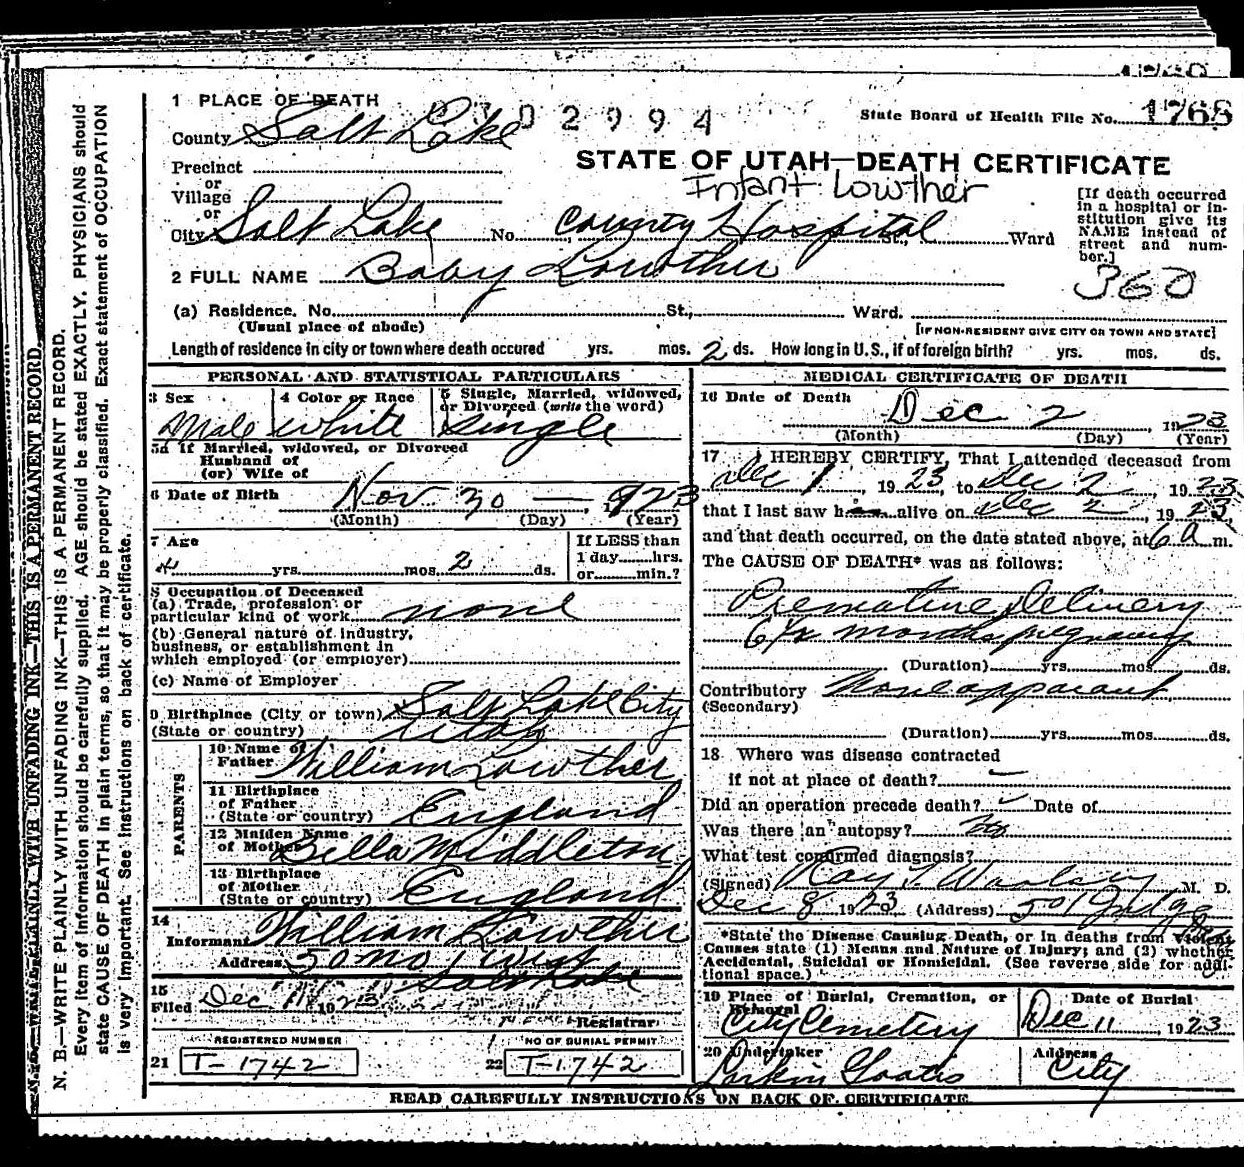 1 PLACE OF DEATH
County Salt Lake
02994
State Board of Health File No. 1768
STATE OF UTAH—DEATH CERTIFICATE
Infant Lowther
Precinct
or
Village
or
City Salt Lake No. County Hospital St., Ward
[If death occurred in a hospital or institution give its NAME instead of street and number.]
360
2 FULL NAME Baby Lowther
(a) Residence. No. St., Ward.
(Usual place of abode)
[IF NON-RESIDENT GIVE CITY OR TOWN AND STATE]
Length of residence in city or town where death occured yrs. mos. 2 ds. How long in U.S., if of foreign birth? yrs. mos. ds.
PERSONAL AND STATISTICAL PARTICULARS
3 Sex
Male
4 Color or Race
White
5 Single, Married, widowed, or Divorced (write the word)
Single
5a If Married, widowed, or Divorced
Husband of
(or) Wife of
6 Date of Birth Nov 30 — 1923
(Month) (Day) (Year)
7 Age
yrs. mos. 2 ds.
If LESS than
1 day hrs.
or min.?
8 Occupation of Deceased
(a) Trade, profession or
particular kind of work none
(b) General nature of industry,
business, or establishment in
which employed (or employer)
(c) Name of Employer
9 Birthplace (City or town) Salt Lake City
(State or country) Utah
PARENTS
10 Name of
Father William Lowther
11 Birthplace
of Father
(State or country) England
12 Maiden Name
of Mother Bella Middleton
13 Birthplace
of Mother
(State or country) England
14
Informant William Lowther
Address 50 No 1 West
Salt Lake
15
Filed Dec 11 1923
Registrar
REGISTERED NUMBER
21 T-1742
NO OF BURIAL PERMIT
22 T-1742
MEDICAL CERTIFICATE OF DEATH
16 Date of Death
Dec 2, 1923
(Month) (Day) (Year)
17 I HEREBY CERTIFY, That I attended deceased from
Dec 1, 1923, to Dec 2, 1923,
that I last saw him alive on Dec 2, 1923,
and that death occurred, on the date stated above, at 6 a m.
The CAUSE OF DEATH* was as follows:
Premature Delivery
6 1/2 months pregnancy
(Duration) yrs. mos. ds.
Contributory None apparant
(Secondary)
(Duration) yrs. mos. ds.
18 Where was disease contracted
if not at place of death?
Did an operation precede death? Date of
Was there an autopsy? No
What test confirmed diagnosis?
(Signed) Ray T. Woolsey M. D.
Dec 8 1923 (Address) 501 Judge Bldg
*State the Disease Causing Death, or in deaths from Violent
Causes state (1) Means and Nature of Injury; and (2) whether
Accidental, Suicidal or Homicidal. (See reverse side for additional space.)
19 Place of Burial, Cremation, or
Removal
City Cemetery
Date of Burial
Dec 11, 1923
20 Undertaker
Larkin
Address
City
READ CAREFULLY INSTRUCTIONS ON BACK OF CERTIFICATE
WRITE PLAINLY WITH UNFADING INK—THIS IS A PERMANENT RECORD.
N. B.—WRITE PLAINLY WITH UNFADING INK—THIS IS A PERMANENT RECORD.
Every item of information should be carefully supplied. AGE should be stated EXACTLY. PHYSICIANS should
state CAUSE OF DEATH in plain terms, so that it may be properly classified. Exact statement of OCCUPATION
is very important. See instructions on back of certificate.